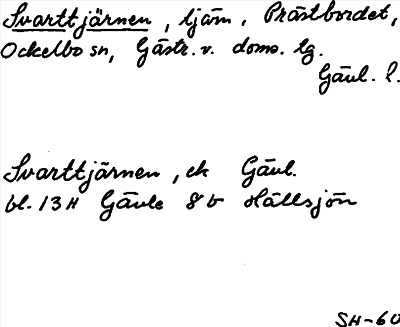 Svarttjärnen, tjärn, Prästbordet,
Ockelbo sn, Gästr. v. doms. tg.
Gävl. l.
Svarttjärnen, ek Gävl.
bl. 13H Gävle 8b Hällsjön
SH-60